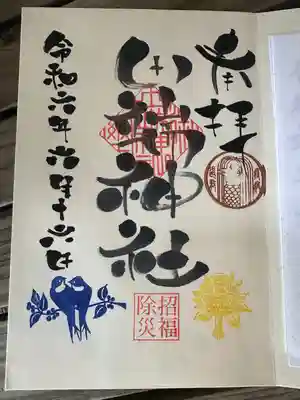 奉拝
神社
令和六年六月十六日
招福
除災